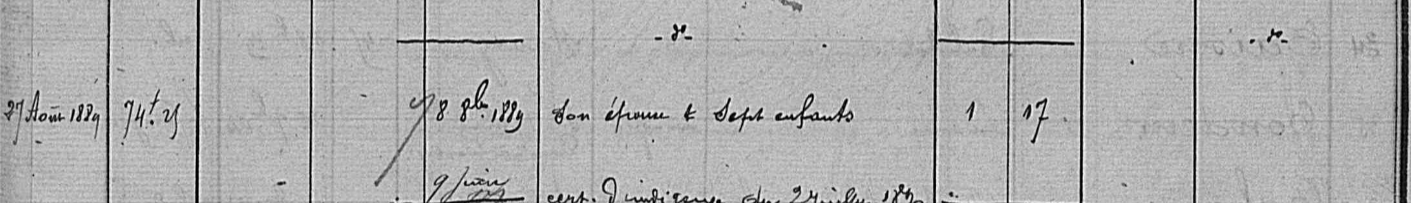 -d°- -d°-
27 Août 1889 74.25 8 8bre 1889 Son épouse & Sept enfants 1 17
9 Juin cert. d'indigence du